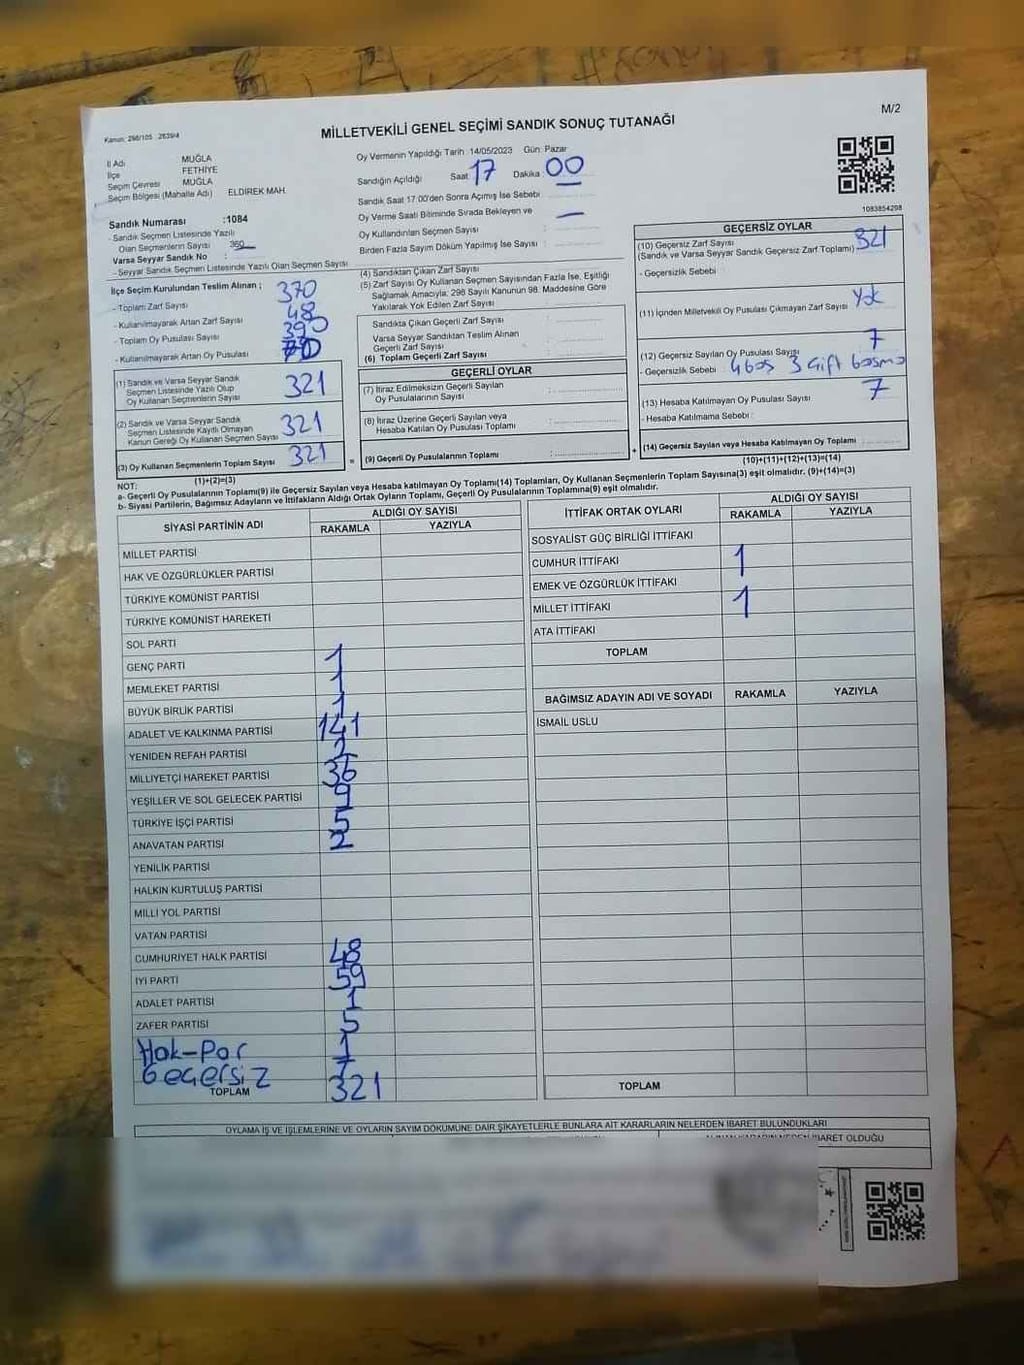 M/2
Kanun: 298/105 2639/4
MİLLETVEKİLİ GENEL SEÇİMİ SANDIK SONUÇ TUTANAĞI
İl Adı MUĞLA
İlçe FETHİYE
Seçim Çevresi MUĞLA
Seçim Bölgesi (Mahalle Adı) ELDİREK MAH.
Sandık Numarası :1084
- Sandık Seçmen Listesinde Yazılı
Olan Seçmenlerin Sayısı : 360
Varsa Seyyar Sandık No :
- Seyyar Sandık Seçmen Listesinde Yazılı Olan Seçmen Sayısı
Oy Vermenin Yapıldığı Tarih :14/05/2023 Gün: Pazar
Sandığın Açıldığı Saat: 17 Dakika: 00
Sandık Saat 17:00'den Sonra Açımış İse Sebebi
Oy Verme Saati Bitiminde Sırada Bekleyen ve —
Oy Kullandırılan Seçmen Sayısı :
Birden Fazla Sayım Döküm Yapılmış İse Sayısı :
1083854298
İlçe Seçim Kurulundan Teslim Alınan ;
- Toplam Zarf Sayısı 370
- Kullanılmayarak Artan Zarf Sayısı 48
- Toplam Oy Pusulası Sayısı 390
- Kullanılmayarak Artan Oy Pusulası
(1) Sandık ve Varsa Seyyar Sandık
Seçmen Listesinde Yazılı Olup
Oy Kullanan Seçmenlerin Sayısı 321
(2) Sandık ve Varsa Seyyar Sandık
Seçmen Listesinde Kayıtlı Olmayan
Kanun Gereği Oy Kullanan Seçmen Sayısı 321
(3) Oy Kullanan Seçmenlerin Toplam Sayısı 321
(1)+(2)=(3)
=
(4) Sandıktan Çıkan Zarf Sayısı
(5) Zarf Sayısı Oy Kullanan Seçmen Sayısından Fazla İse, Eşitliği
Sağlamak Amacıyla; 298 Sayılı Kanunun 98. Maddesine Göre
Yakılarak Yok Edilen Zarf Sayısı :
Sandıkta Çıkan Geçerli Zarf Sayısı :
Varsa Seyyar Sandıktan Teslim Alınan
Geçerli Zarf Sayısı :
(6) Toplam Geçerli Zarf Sayısı :
GEÇERLİ OYLAR
(7) İtiraz Edilmeksizin Geçerli Sayılan
Oy Pusulalarının Sayısı :
(8) İtiraz Üzerine Geçerli Sayılan veya
Hesaba Katılan Oy Pusulası Toplamı :
(9) Geçerli Oy Pusulalarının Toplamı :
+
GEÇERSİZ OYLAR
(10) Geçersiz Zarf Sayısı
(Sandık ve Varsa Seyyar Sandık Geçersiz Zarf Toplamı) 321
- Geçersizlik Sebebi :
(11) İçinden Milletvekili Oy Pusulası Çıkmayan Zarf Sayısı Yok
(12) Geçersiz Sayılan Oy Pusulası Sayısı 7
- Geçersizlik Sebebi : 4 boş 3 çift basma
(13) Hesaba Katılmayan Oy Pusulası Sayısı 7
- Hesaba Katılmama Sebebi :
(14) Geçersiz Sayılan veya Hesaba Katılmayan Oy Toplamı
(10)+(11)+(12)+(13)=(14)
NOT:
a- Geçerli Oy Pusulalarının Toplamı(9) ile Geçersiz Sayılan veya Hesaba katılmayan Oy Toplamı(14) Toplamları, Oy Kullanan Seçmenlerin Toplam Sayısına(3) eşit olmalıdır. (9)+(14)=(3)
b- Siyasi Partilerin, Bağımsız Adayların ve İttifakların Aldığı Ortak Oyların Toplamı, Geçerli Oy Pusulalarının Toplamına(9) eşit olmalıdır.
SİYASİ PARTİNİN ADI ALDIĞI OY SAYISI
RAKAMLA YAZIYLA
MİLLET PARTİSİ
HAK VE ÖZGÜRLÜKLER PARTİSİ
TÜRKİYE KOMÜNİST PARTİSİ
TÜRKİYE KOMÜNİST HAREKETİ
SOL PARTİ
GENÇ PARTİ 1
MEMLEKET PARTİSİ 1
BÜYÜK BİRLİK PARTİSİ 1
ADALET VE KALKINMA PARTİSİ 141
YENİDEN REFAH PARTİSİ 2
MİLLİYETÇİ HAREKET PARTİSİ 36
YEŞİLLER VE SOL GELECEK PARTİSİ 9
TÜRKİYE İŞÇİ PARTİSİ 5
ANAVATAN PARTİSİ 2
YENİLİK PARTİSİ
HALKIN KURTULUŞ PARTİSİ
MİLLİ YOL PARTİSİ
VATAN PARTİSİ
CUMHURİYET HALK PARTİSİ 48
İYİ PARTİ 59
ADALET PARTİSİ 1
ZAFER PARTİSİ 5
Hak-Par 1
Geçersiz 7
TOPLAM 321
İTTİFAK ORTAK OYLARI ALDIĞI OY SAYISI
RAKAMLA YAZIYLA
SOSYALİST GÜÇ BİRLİĞİ İTTİFAKI
CUMHUR İTTİFAKI 1
EMEK VE ÖZGÜRLÜK İTTİFAKI
MİLLET İTTİFAKI 1
ATA İTTİFAKI
TOPLAM
BAĞIMSIZ ADAYIN ADI VE SOYADI RAKAMLA YAZIYLA
İSMAİL USLU
TOPLAM
OYLAMA İŞ VE İŞLEMLERİNE VE OYLARIN SAYIM DÖKÜMÜNE DAİR ŞİKAYETLERLE BUNLARA AİT KARARLARIN NELERDEN İBARET BULUNDUKLARI
İBARET OLDUĞU